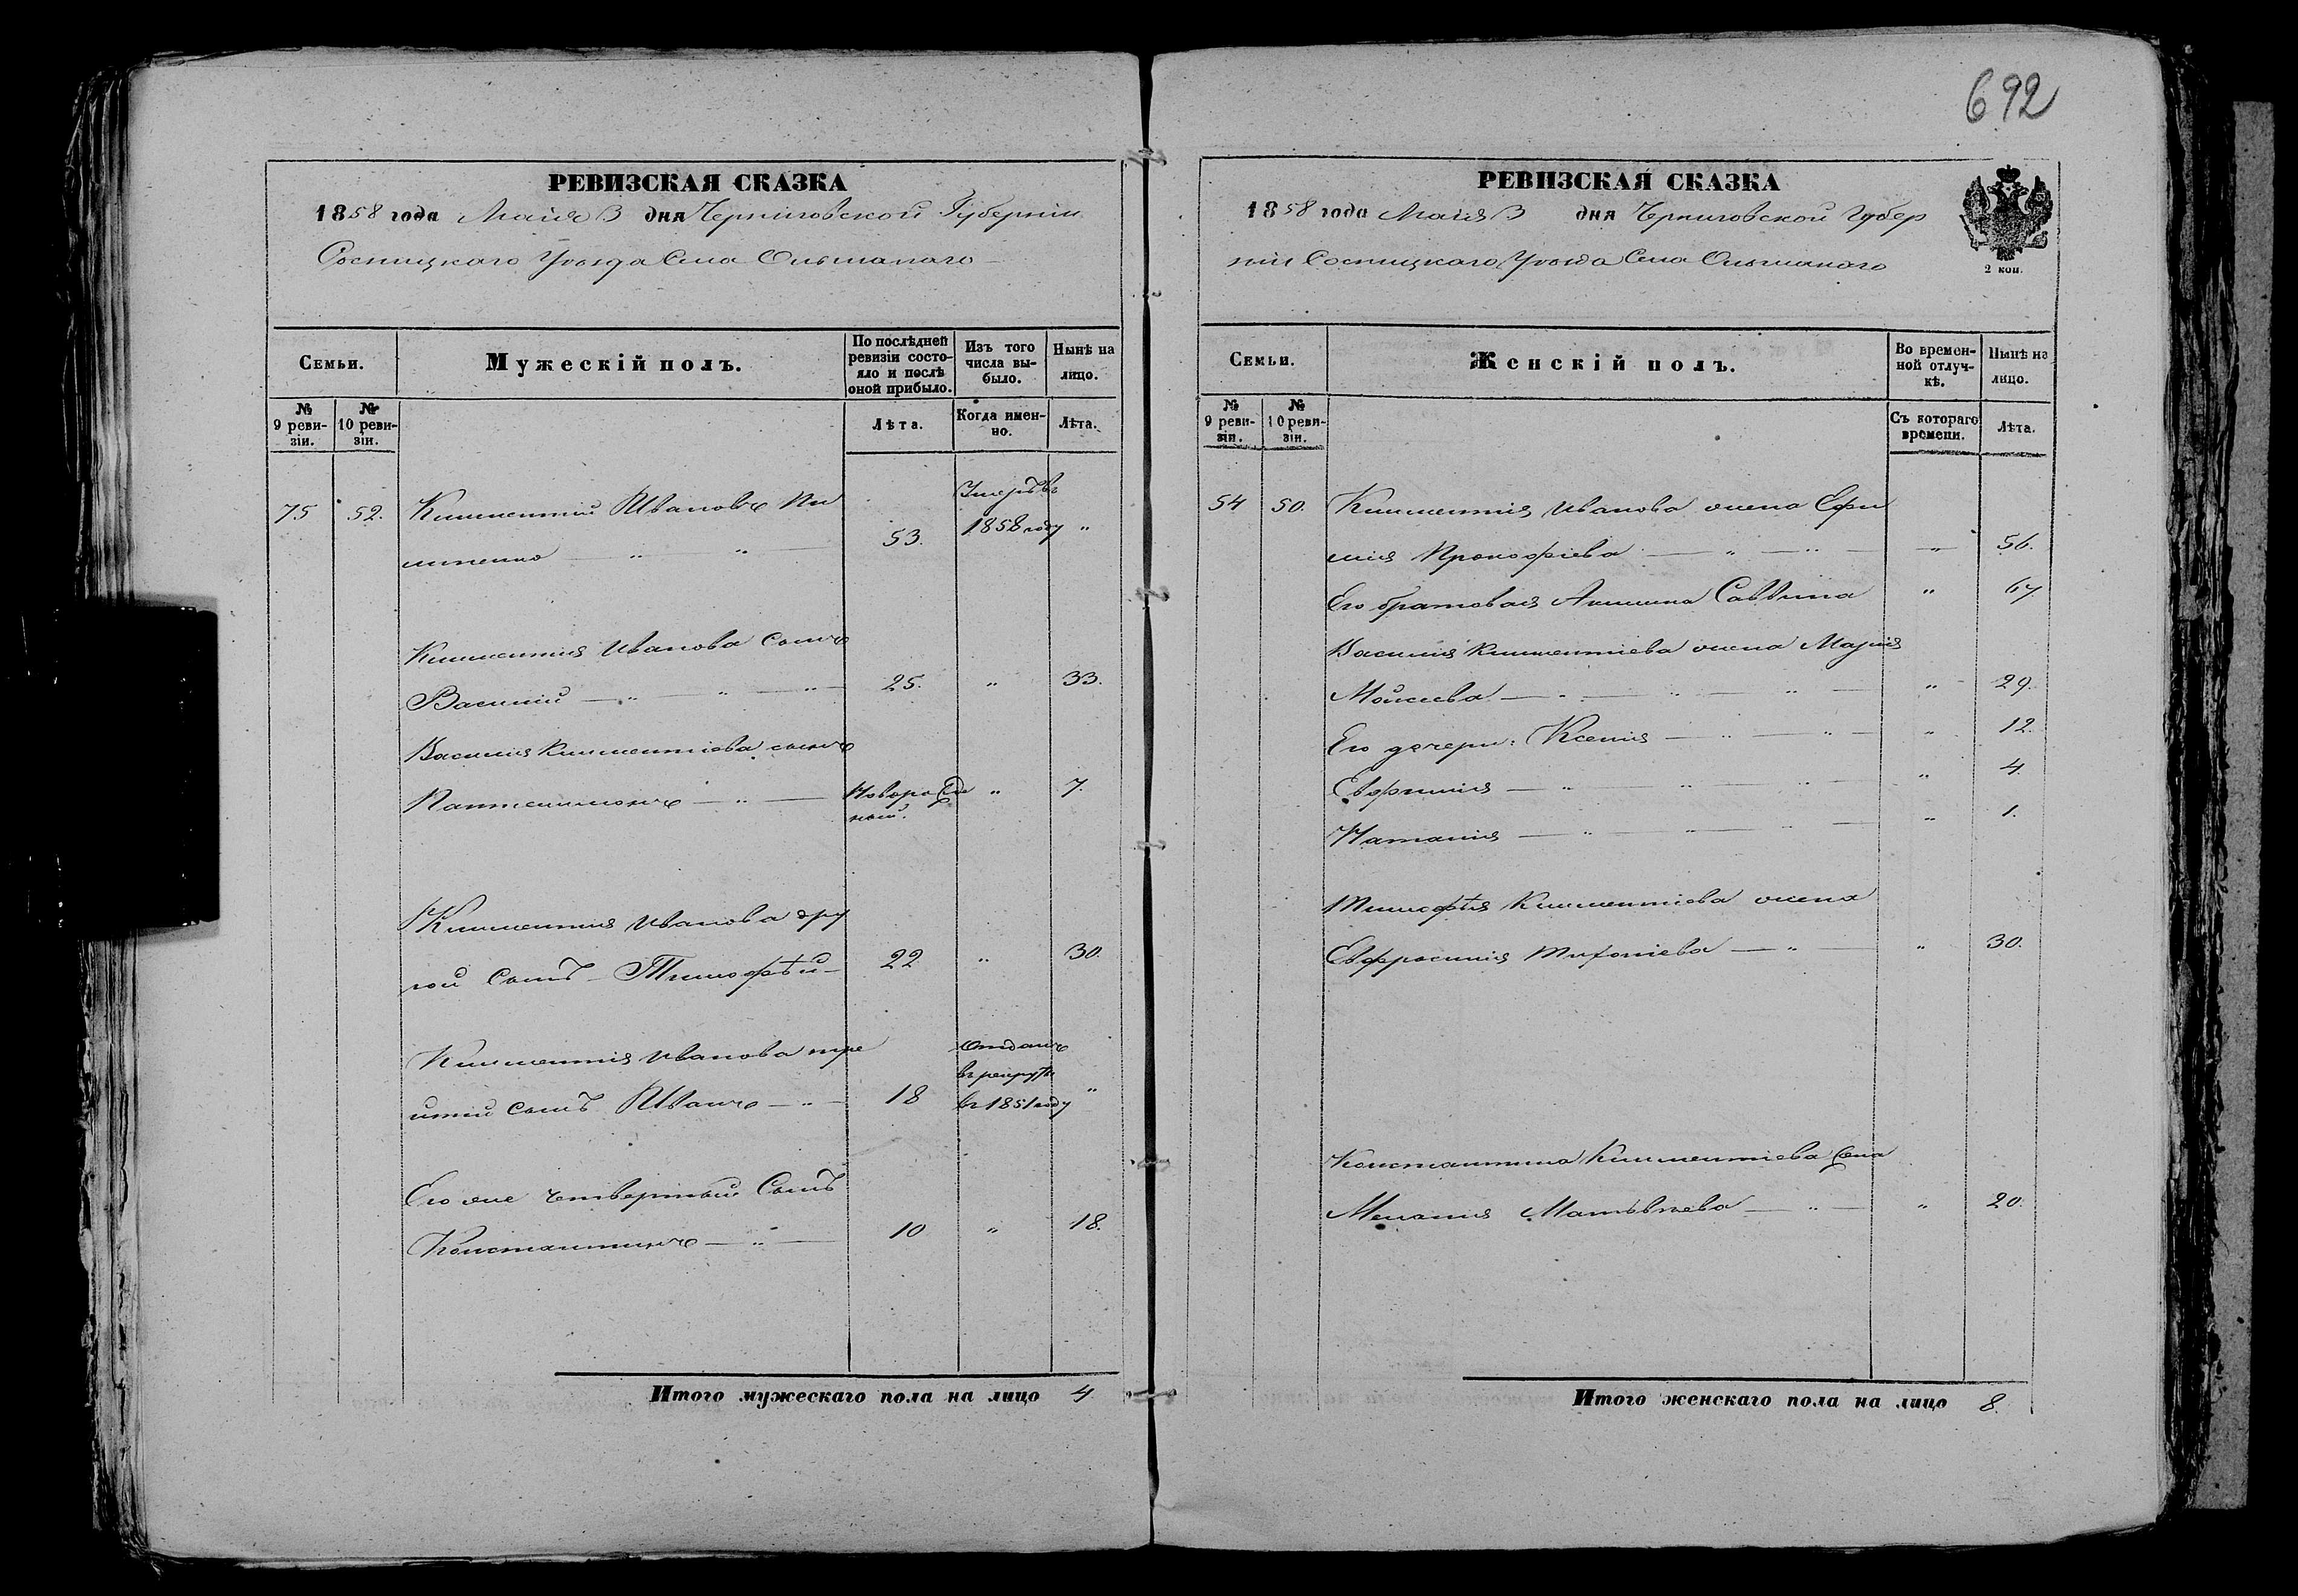 692
РЕВИЗСКАЯ СКАЗКА
1858 года Маія 3 дня Черниговской Губерніи
Сосницкаго Уѣзда Села Ольшанаго
Семьи.
Мужескій полъ.
По послѣдней ревизіи состояло и послѣ оной прибыло.
Изъ того числа выбыло.
Нынѣ на лицо.
№ 9 ревизіи.
№ 10 ревизіи.
Лѣта.
Когда именно.
Лѣта.
75 52. Климентій Ивановъ Пи
53. Умеръ въ 1858 году "
Климентія Иванова сынъ
Василій — " — " — " — 25. " 33.
Василія Климентіева сынъ
Пантелимонъ — " — Новорожде ный. " 7.
Климентія Иванова дру
гой Сынъ Тимофѣй — 22 " 30.
Климентія Иванова тре
тій сынъ Иванъ — " — 18 Отданъ въ рекруты въ 1851 году "
Его же четвертый Сынъ
Константинъ — " — 10 " 18.
Итого мужескаго пола на лицо 4
РЕВИЗСКАЯ СКАЗКА
1858 года Маія 3 дня Черниговской Губер
ніи Сосницкаго Уѣзда Села Ольшанаго
2 коп.
Семьи.
Женскій полъ.
Во временной отлучкѣ.
Нынѣ на лицо.
№ 9 ревизіи.
№ 10 ревизіи.
Съ котораго времени.
Лѣта.
54 50. Климентія Иванова жена Ефи
мія Прокофіева — " — " — " 56.
Его братовая Саввина " 67
Василія Климентіева жена Марія
Мойсеева — " — " — " — " 29.
Его дочери: Ксенія — " — " — " 12.
Евфимія — " " " — " 4.
Наталія — " — " — " — " 1.
Тимофѣя Климентіева жена
Евфросинія Трифоніева — " — " 30.
Константина Климентіева жена
Меланія Матвѣева — " — " 20.
Итого женскаго пола на лицо 8.